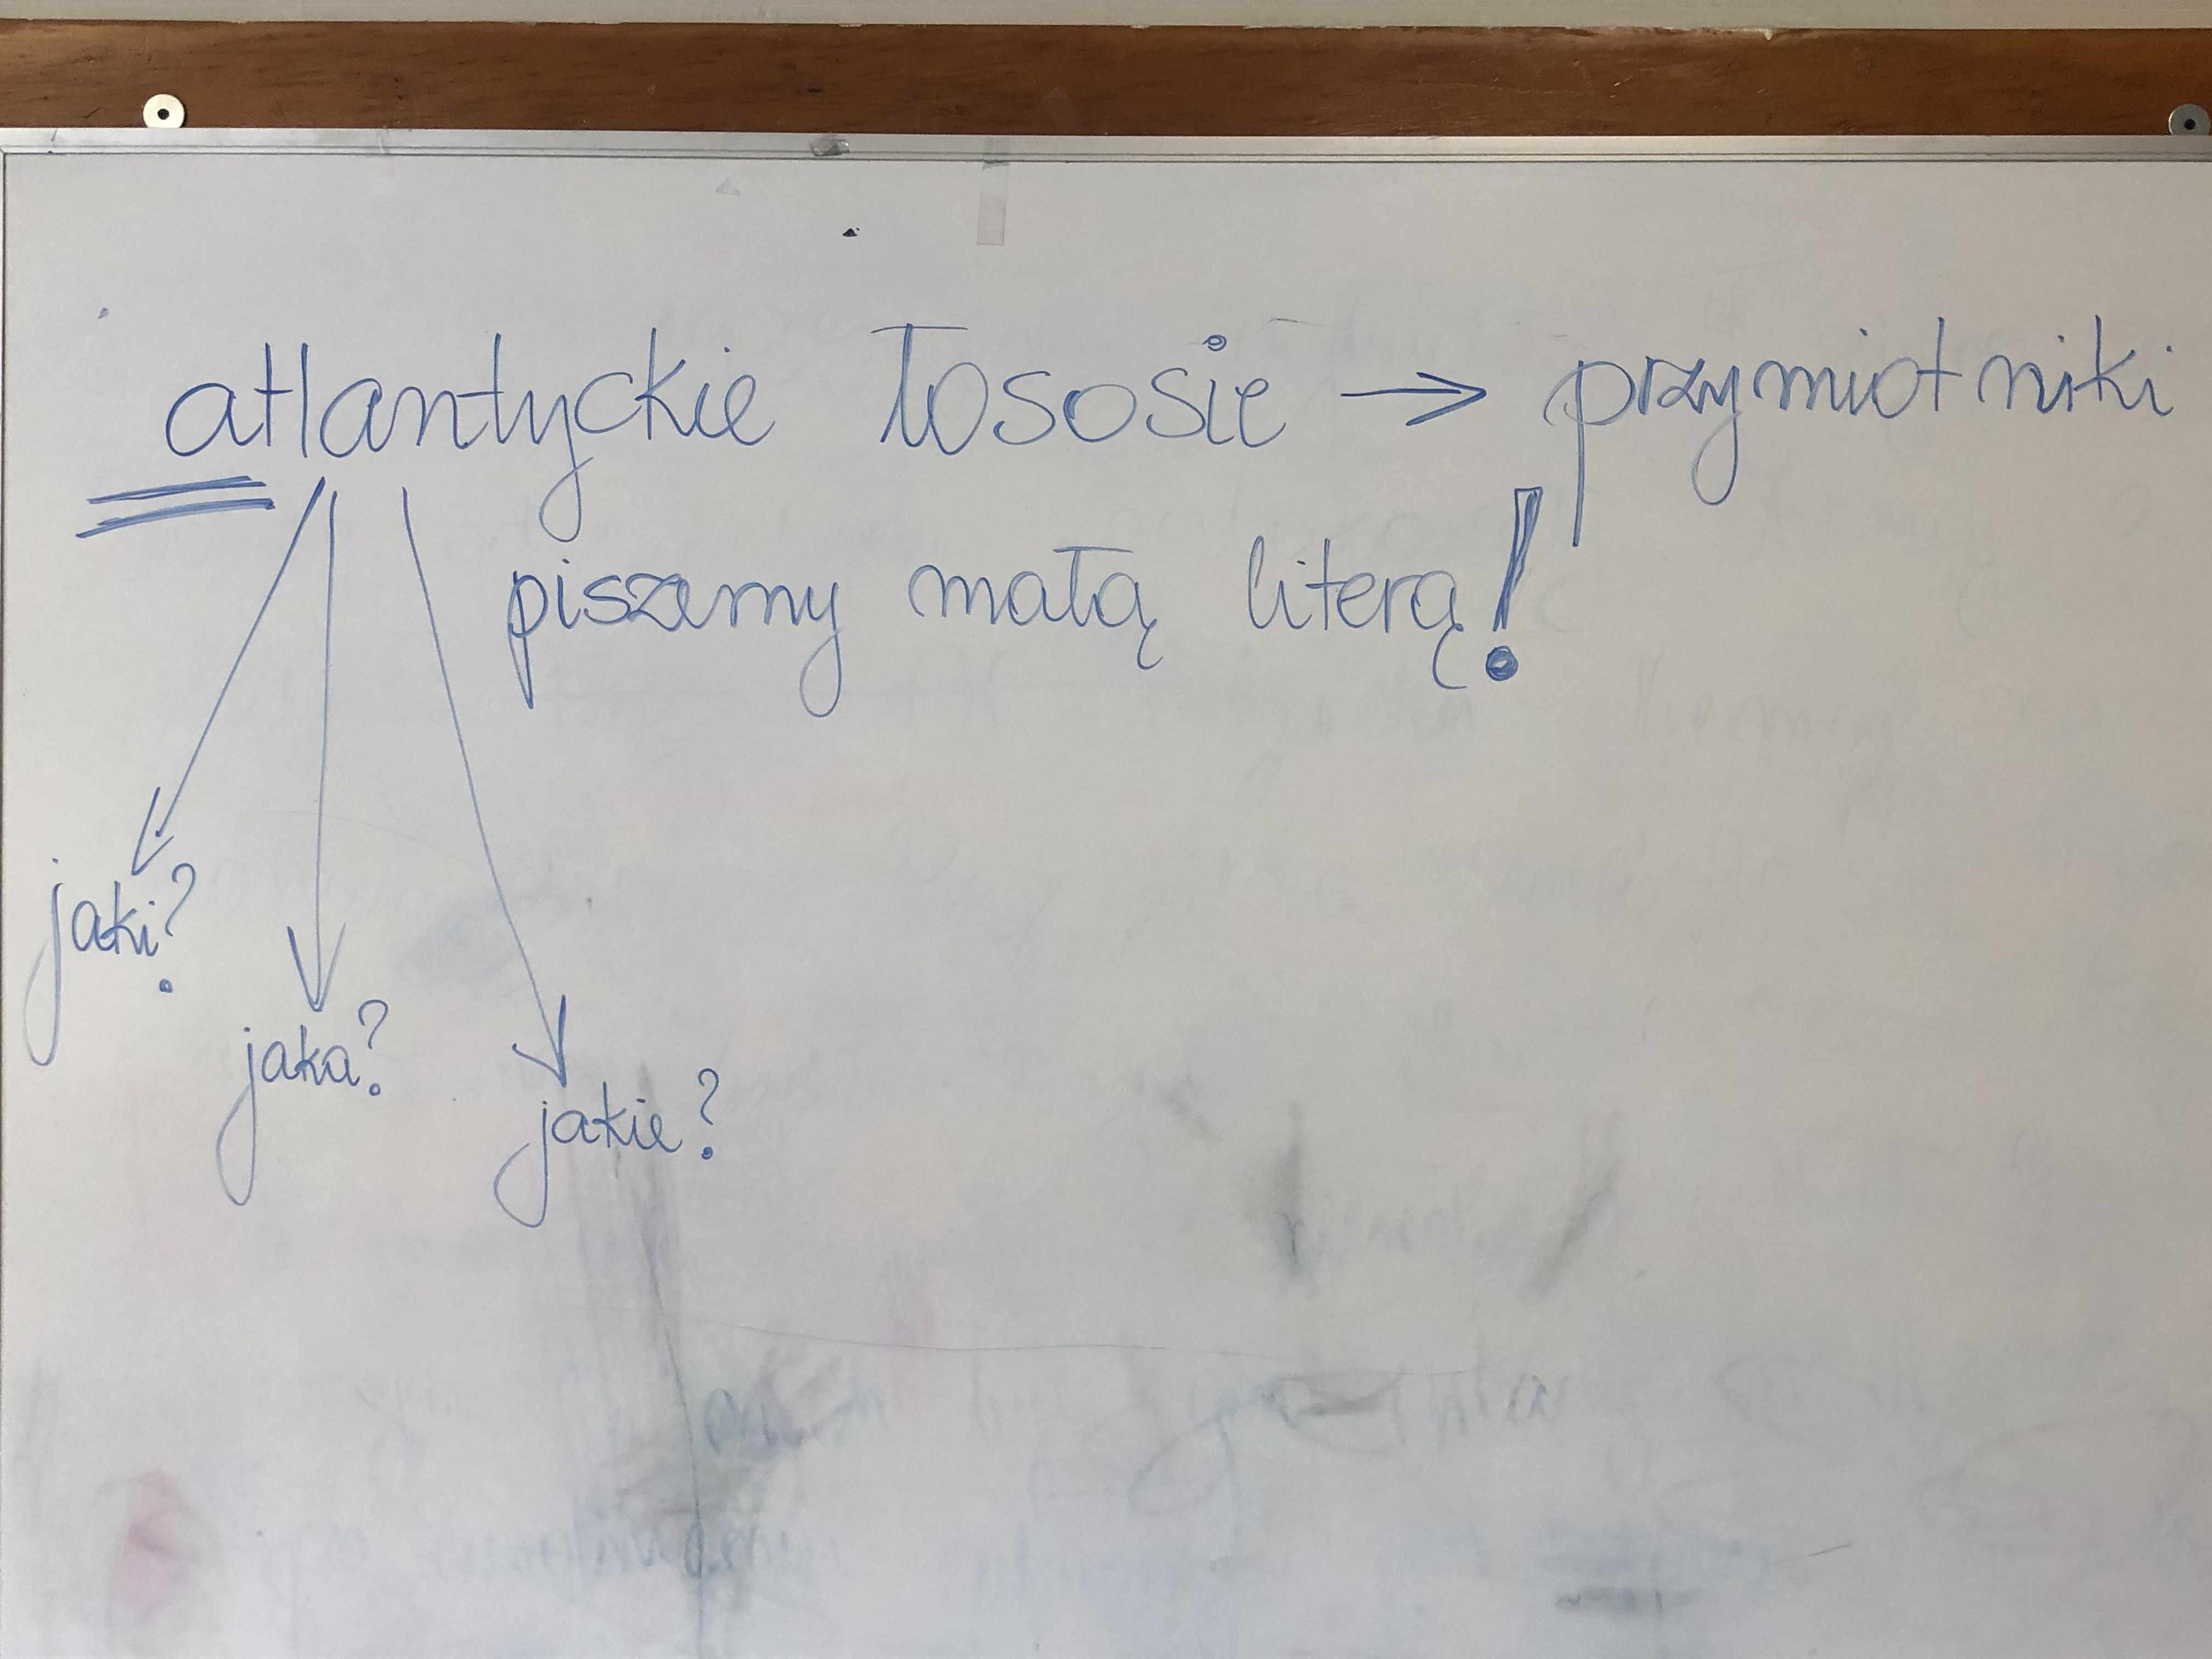 atlantyckie łososie → przymiotniki
piszemy małą literą!
jaki?
jaka?
jakie?